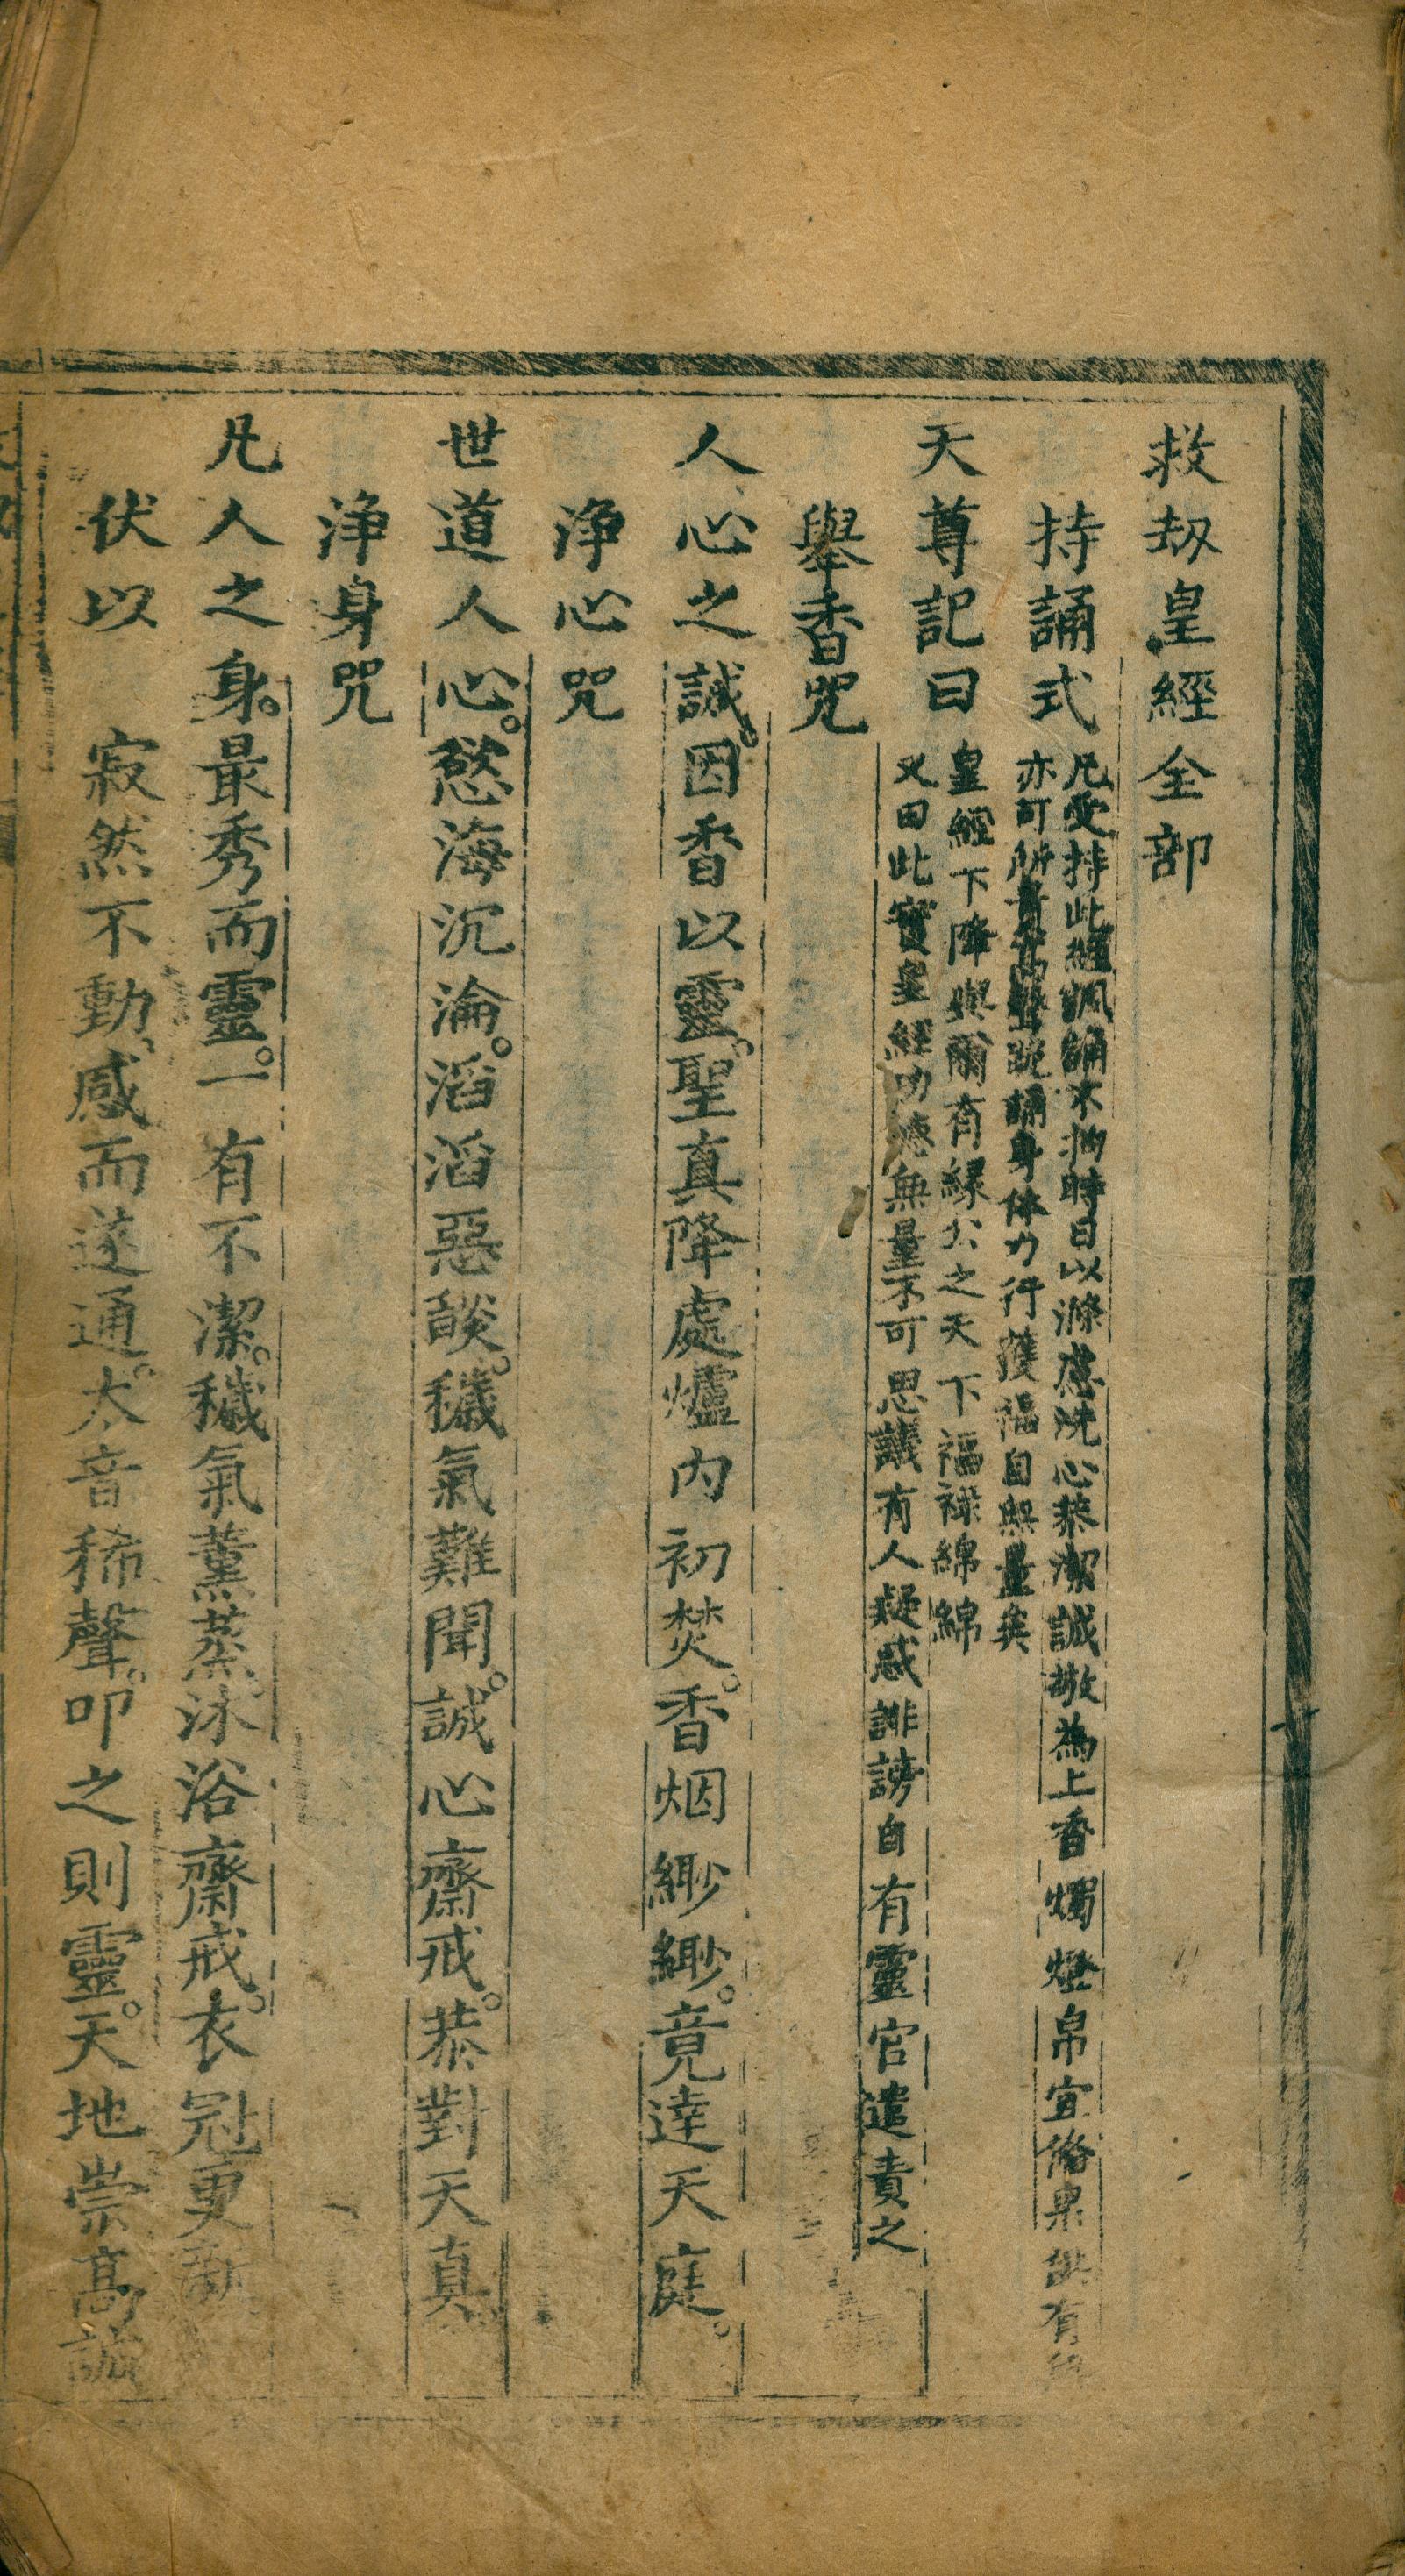 救刼皇經全部
持誦式
凡受持此經諷誦不拘時日以滌慮洗心恭潔誠敬為上香燭燈帛宜俻果供有
亦可所貴高聲跪誦身体力行獲福自無量矣
天尊記曰
皇經下降與爾有緣公之天下福祿綿綿
又曰此寶皇經功德無量不可思議有人疑惑誹謗自有靈官遣責之
舉香咒
人心之誠。因香以靈。聖真降處爐內初焚。香烟緲緲。竟達天庭。
淨心咒
世道人心。慾海沉淪。滔滔惡燄。穢氣難聞。誠心齋戒。恭對天真
淨身咒
凡人之身。最秀而靈。一有不潔。穢氣薰蒸沐浴齋戒。衣冠更新
伏以 寂然不動、感而遂通。太音稀聲。叩之則靈。天地崇高誠